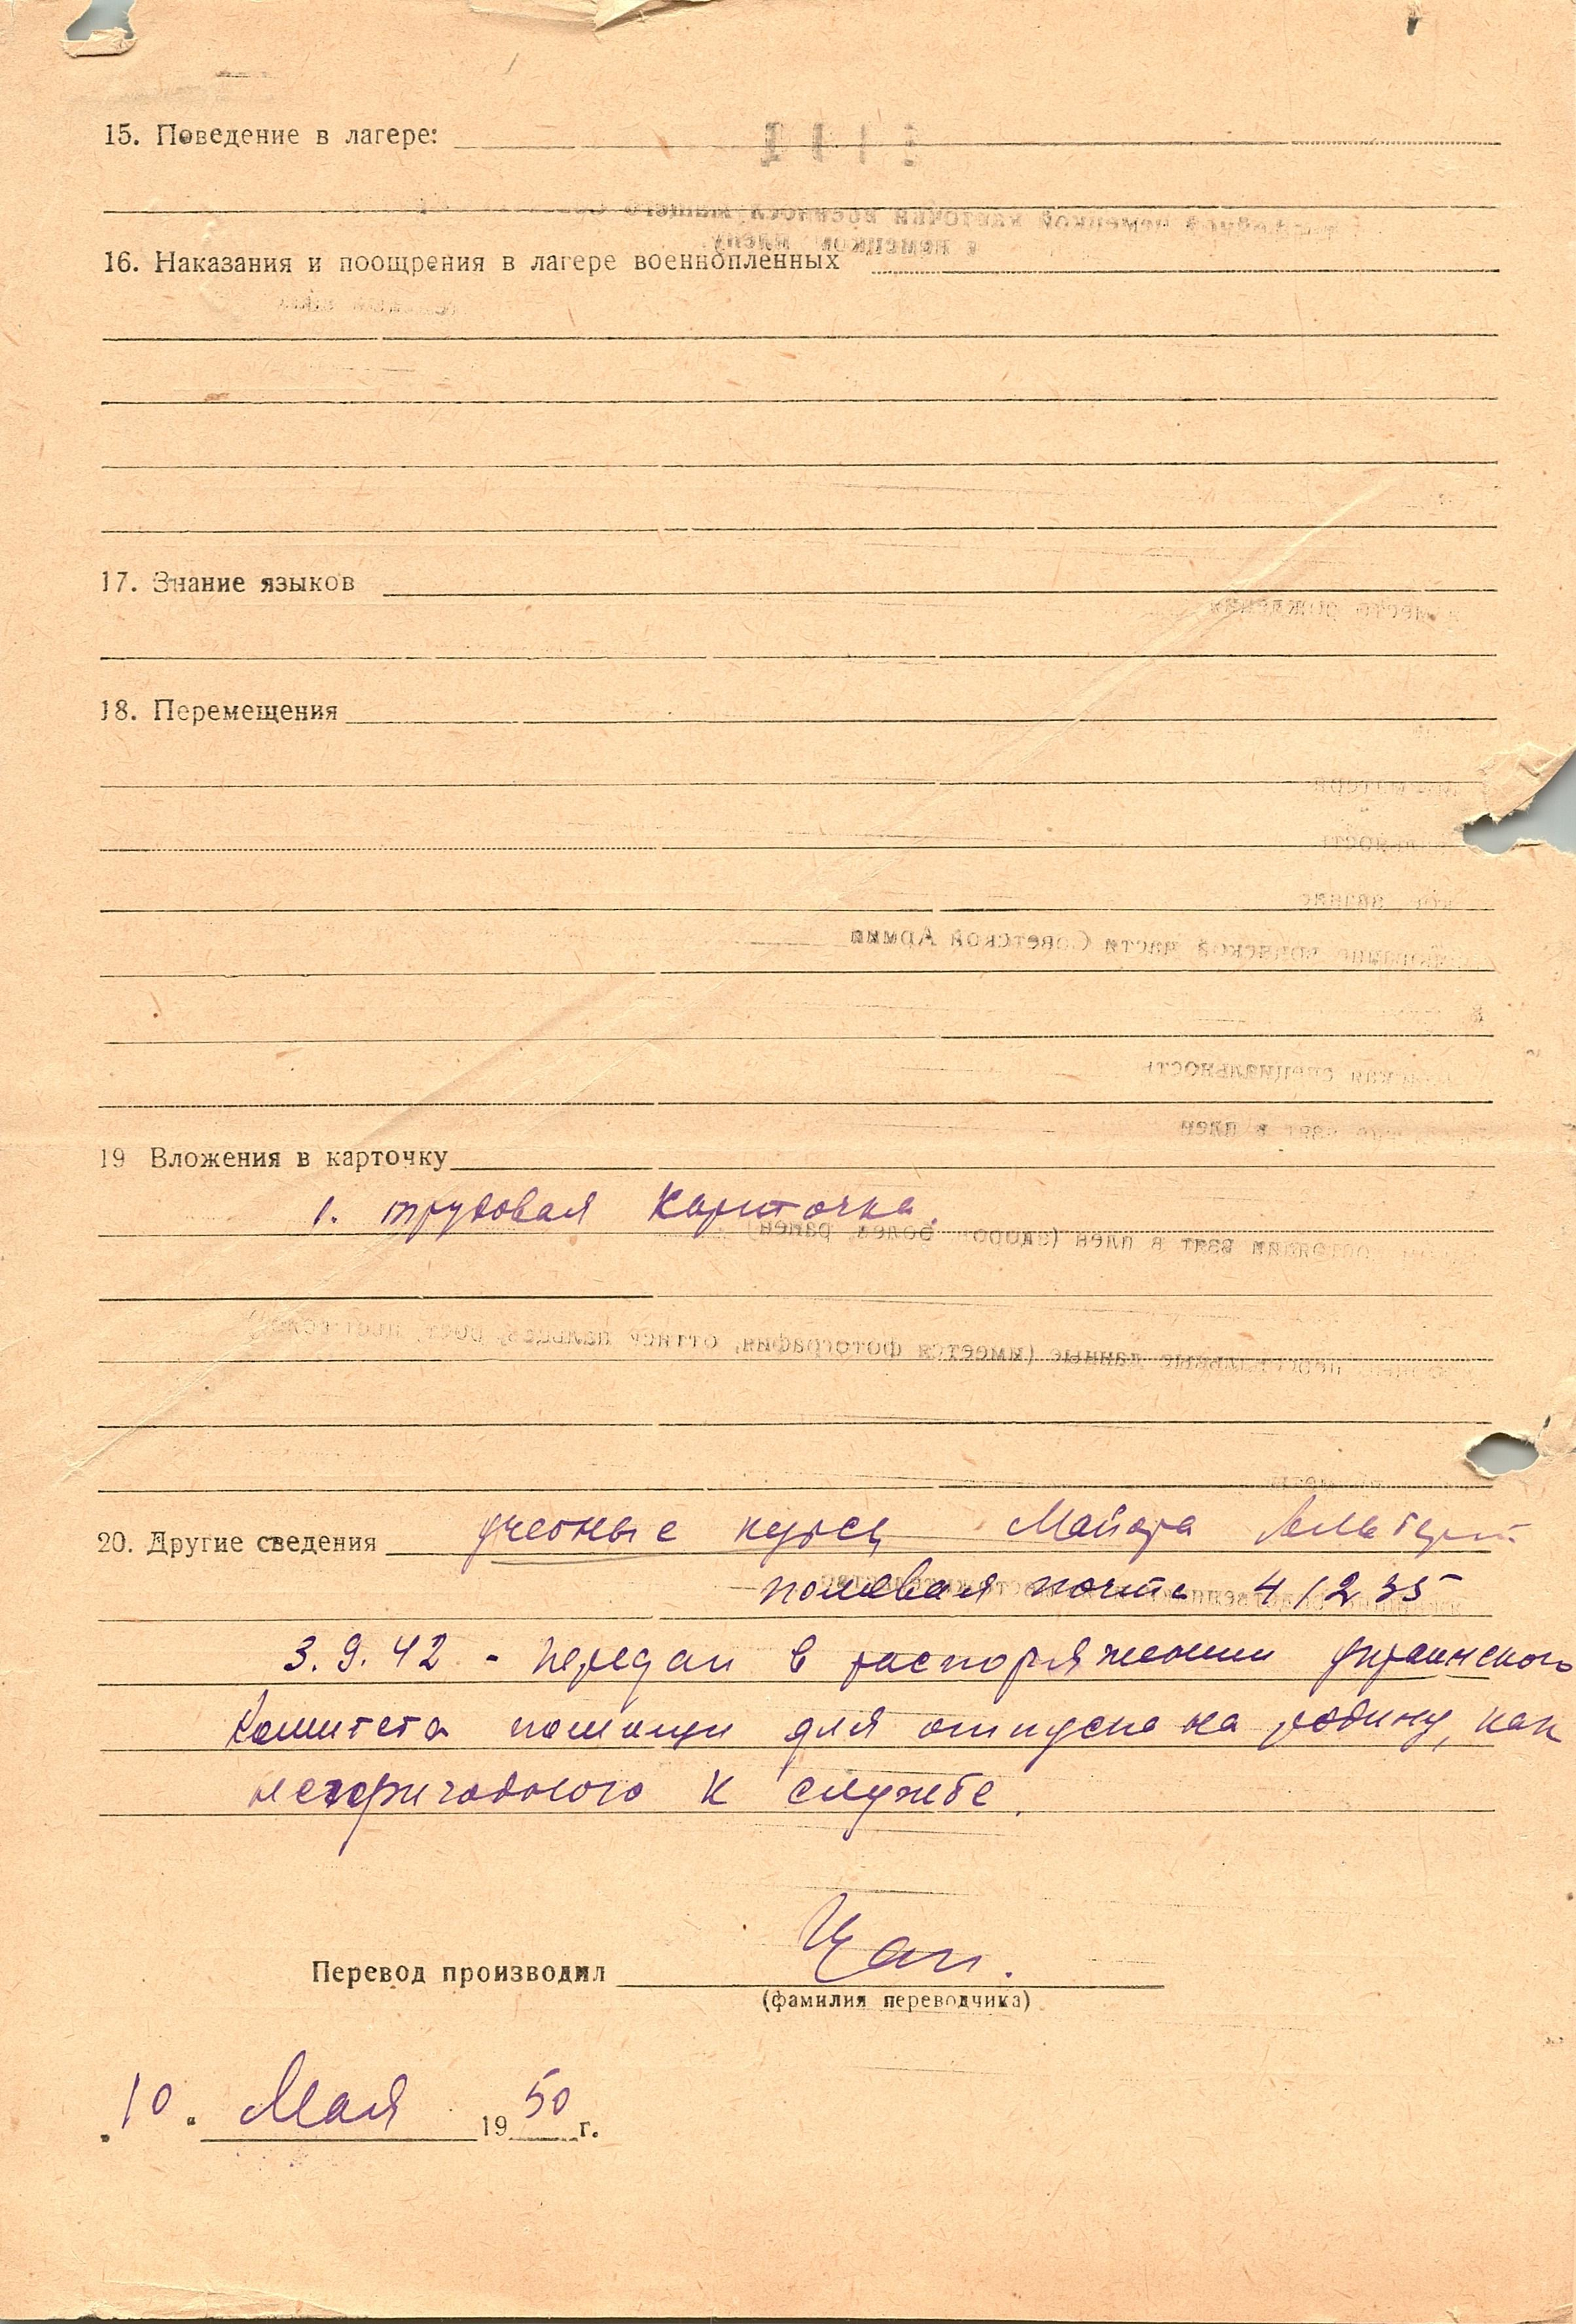 15. Поведение в лагере:
16. Наказания и поощрения в лагере военнопленных
17. Знание языков
18. Перемещения
19 Вложения в карточку
1. трудовая карточка.
20. Другие сведения учебные курсы Майора
полевая почта 41235
3.9.42 - передан в распоряжении украинского
комитета помощи для отпуска на родину, как
непригодного к службе.
Перевод производил
(фамилия переводчика)
"10" Мая 1950 г.